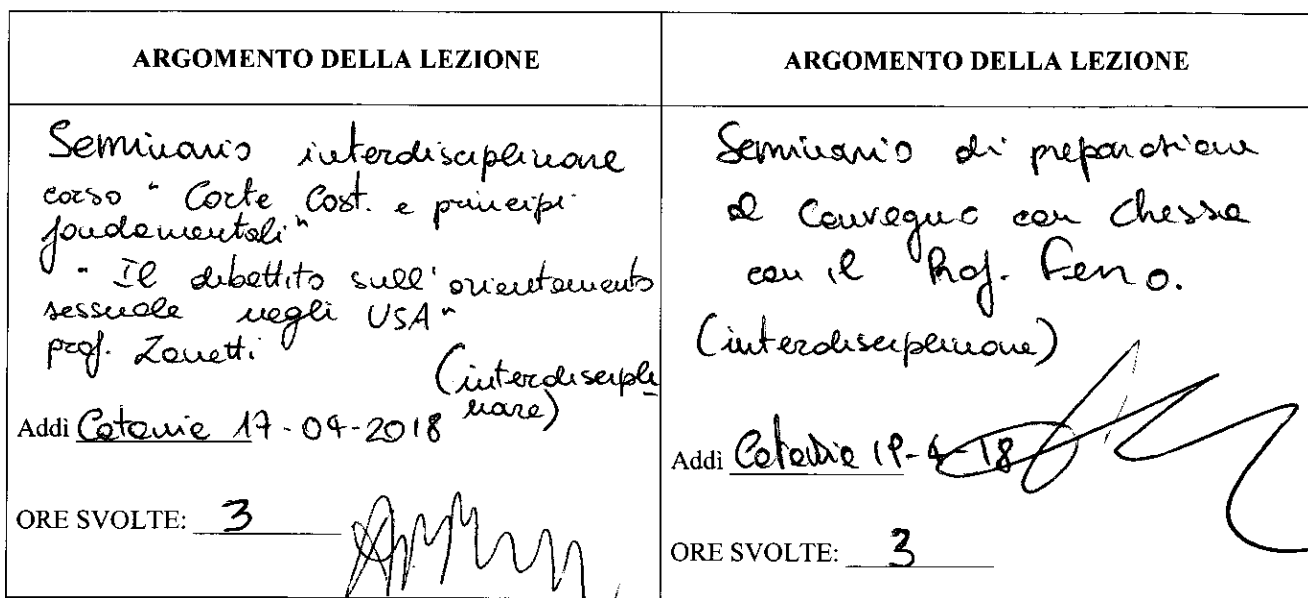 ARGOMENTO DELLA LEZIONE
Seminario interdisciplinare
corso " Corte Cost. e principi
fondamentali"
" Il dibattito sull'orientamento
sessuale negli USA"
prof. Zanetti
(interdiscipli
nare)
Addì Catania 17-04-2018
ORE SVOLTE: 3
ARGOMENTO DELLA LEZIONE
Seminario di preparazione
al Convegno con Chessa
con il Prof. Ferro.
(interdisciplinare)
Addì Catania -4-18
ORE SVOLTE: 3